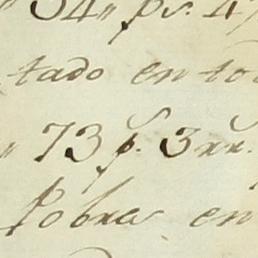 " 34 " ps. 4
tado en to
" 73 p. 3 rr.
Pobra en